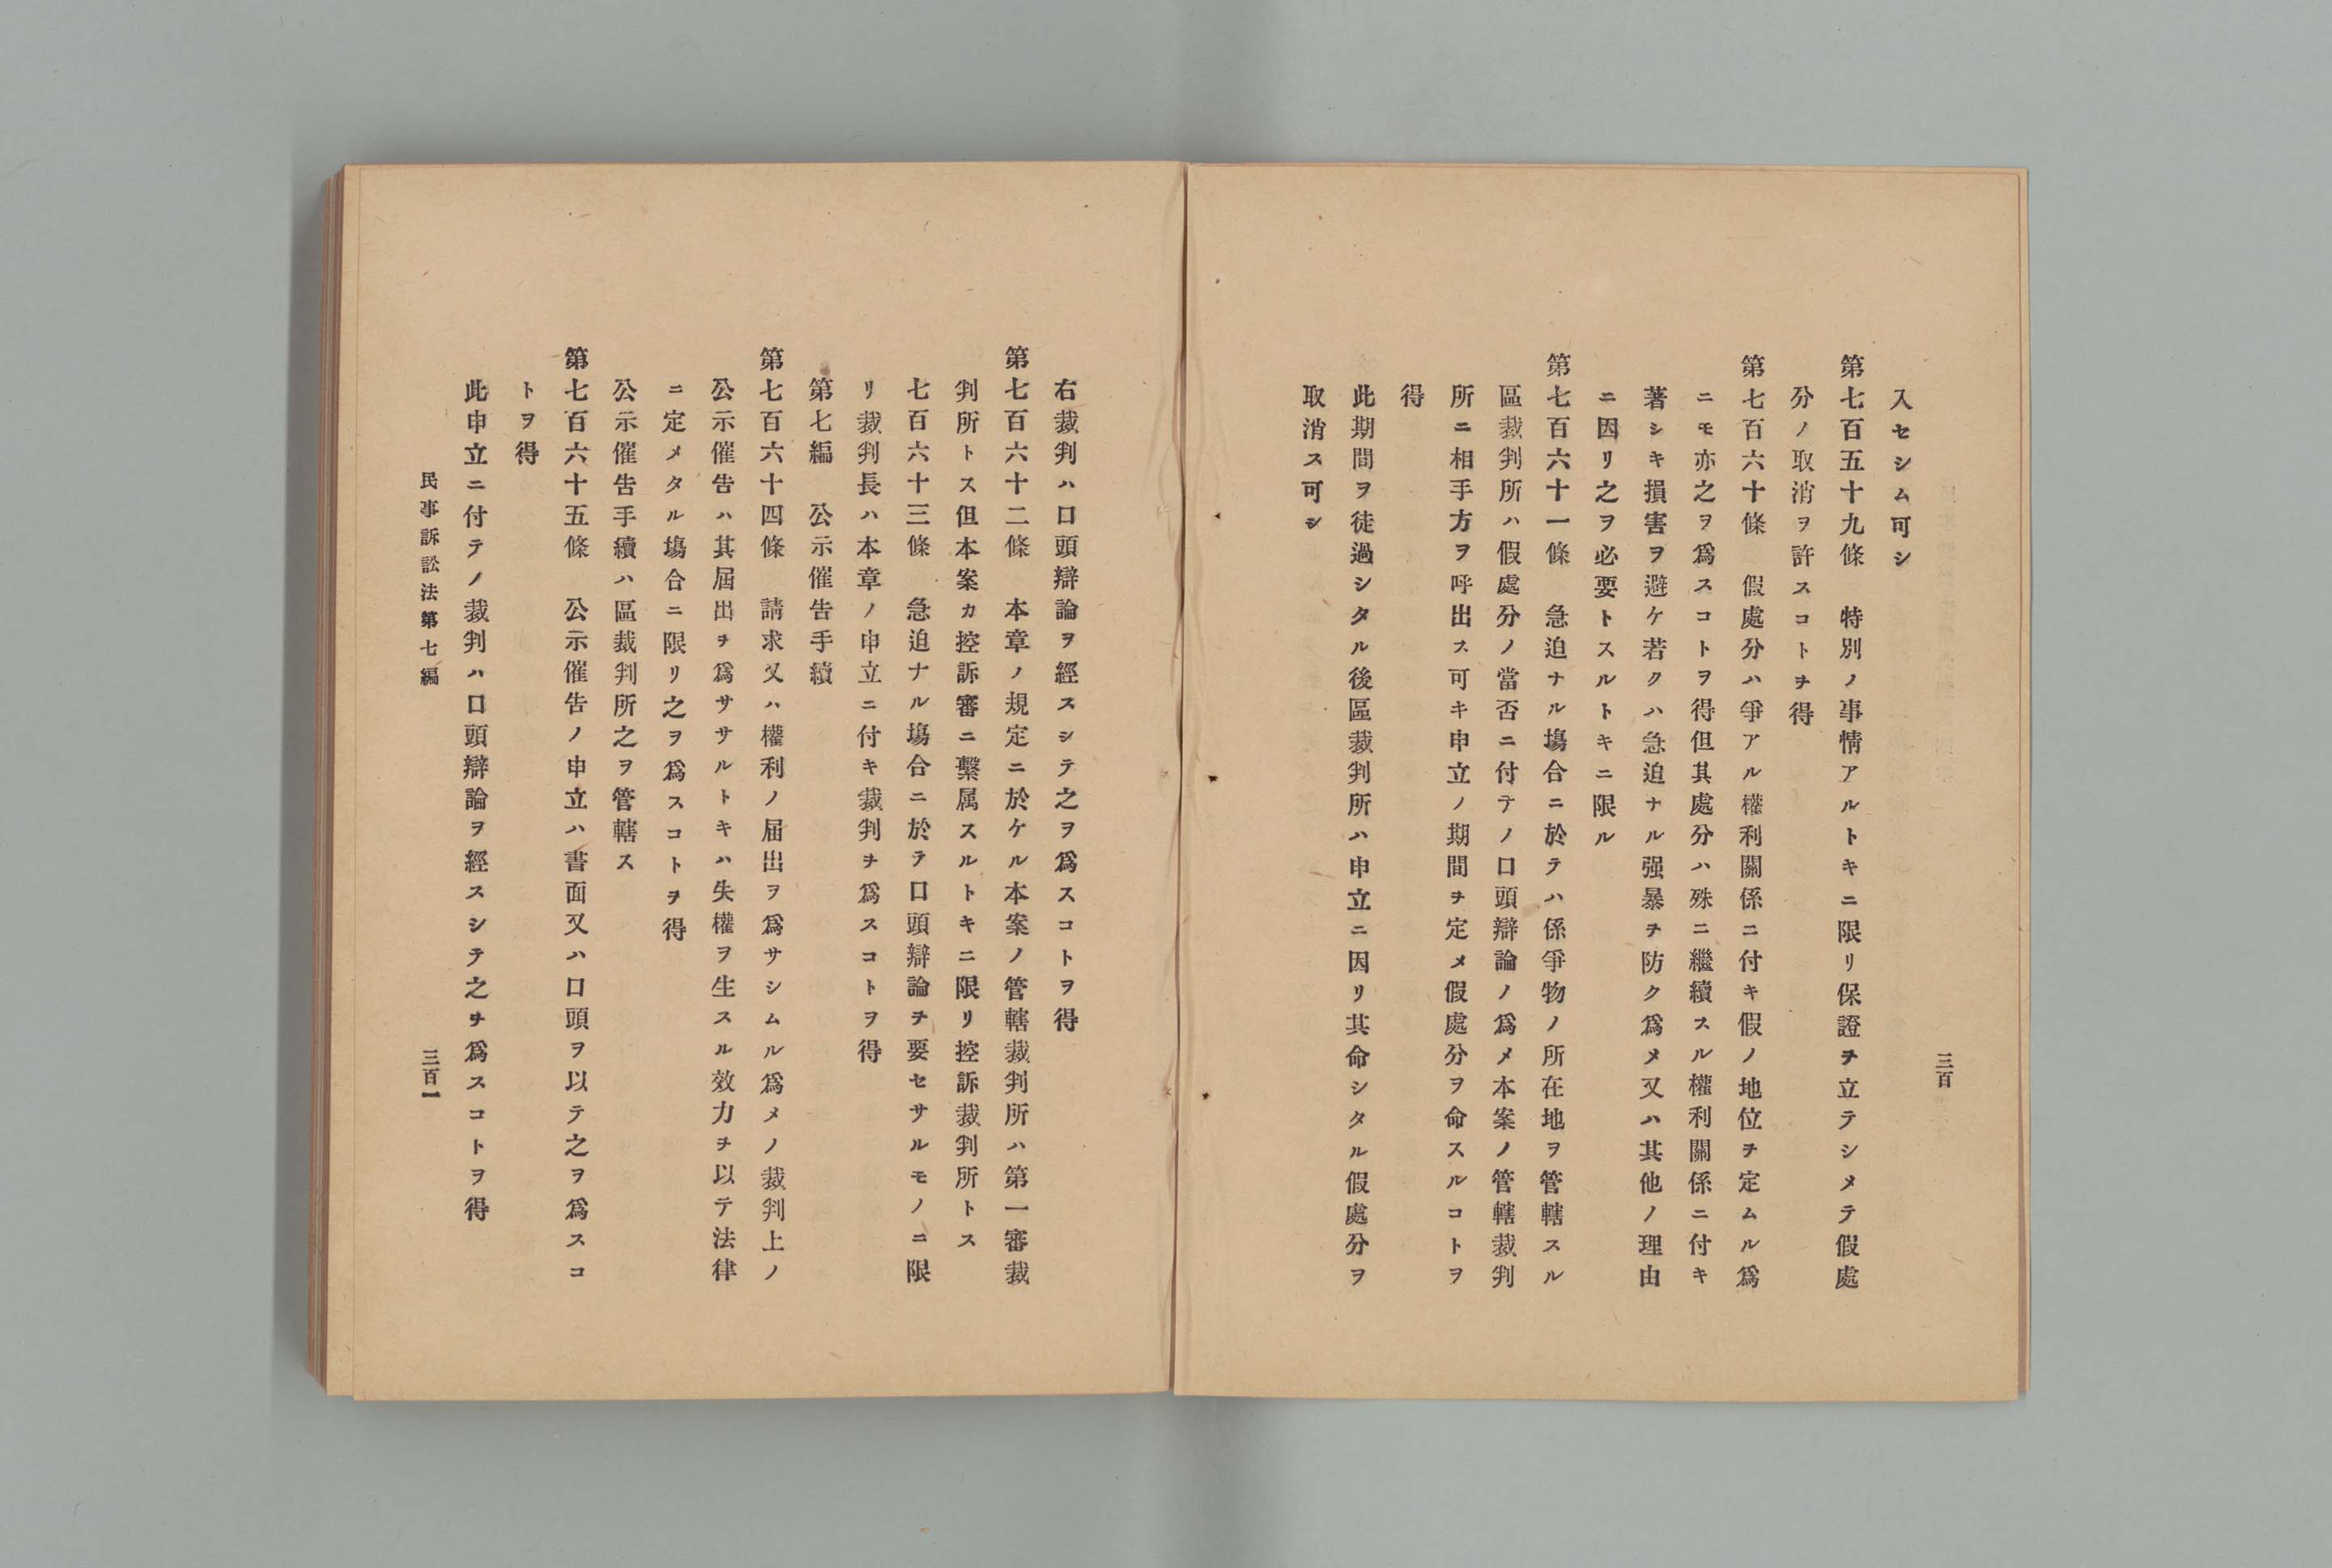 三百
入セシム可シ
第七百五十九條　特別ノ事情アルトキニ限リ保證ヲ立テシメテ假處
分ノ取消ヲ許スコトヲ得
第七百六十條　假處分ハ爭アル權利關係ニ付キ假ノ地位ヲ定ムル爲
ニモ亦之ヲ爲スコトヲ得但其處分ハ殊ニ繼續スル權利關係ニ付キ
著シキ損害ヲ避ケ若クハ急迫ナル强暴ヲ防ク爲メ又ハ其他ノ理由
ニ因リ之ヲ必要トスルトキニ限ル
第七百六十一條　急迫ナル塲合ニ於テハ係爭物ノ所在地ヲ管轄スル
區裁判所ハ假處分ノ當否ニ付テノ口頭辯論ノ爲メ本案ノ管轄裁判
所ニ相手方ヲ呼出ス可キ申立ノ期間ヲ定メ假處分ヲ命スルコトヲ
得
此期間ヲ徒過シタル後區裁判所ハ申立ニ因リ其命シタル假處分ヲ
取消ス可シ
右裁判ハ口頭辯論ヲ經スシテ之ヲ爲スコトヲ得
第七百六十二條　本章ノ規定ニ於ケル本案ノ管轄裁判所ハ第一審裁
判所トス但本案カ控訴審ニ繫属スルトキニ限リ控訴裁判所トス
七百六十三條　急迫ナル塲合ニ於テ口頭辯論ヲ要セサルモノニ限
リ裁判長ハ本章ノ申立ニ付キ裁判ヲ爲スコトヲ得
第七編　公示催告手續
第七百六十四條　請求又ハ權利ノ届出ヲ爲サシムル爲メノ裁判上ノ
公示催告ハ其届出ヲ爲ササルトキハ失權ヲ生スル效力ヲ以テ法律
ニ定メタル塲合ニ限リ之ヲ爲スコトヲ得
公示催告手續ハ區裁判所之ヲ管轄ス
第七百六十五條　公示催告ノ申立ハ書面又ハ口頭ヲ以テ之ヲ爲スコ
トヲ得
此申立ニ付テノ裁判ハ口頭辯論ヲ經スシテ之ヲ爲スコトヲ得
民事訴訟法第七編
三百一